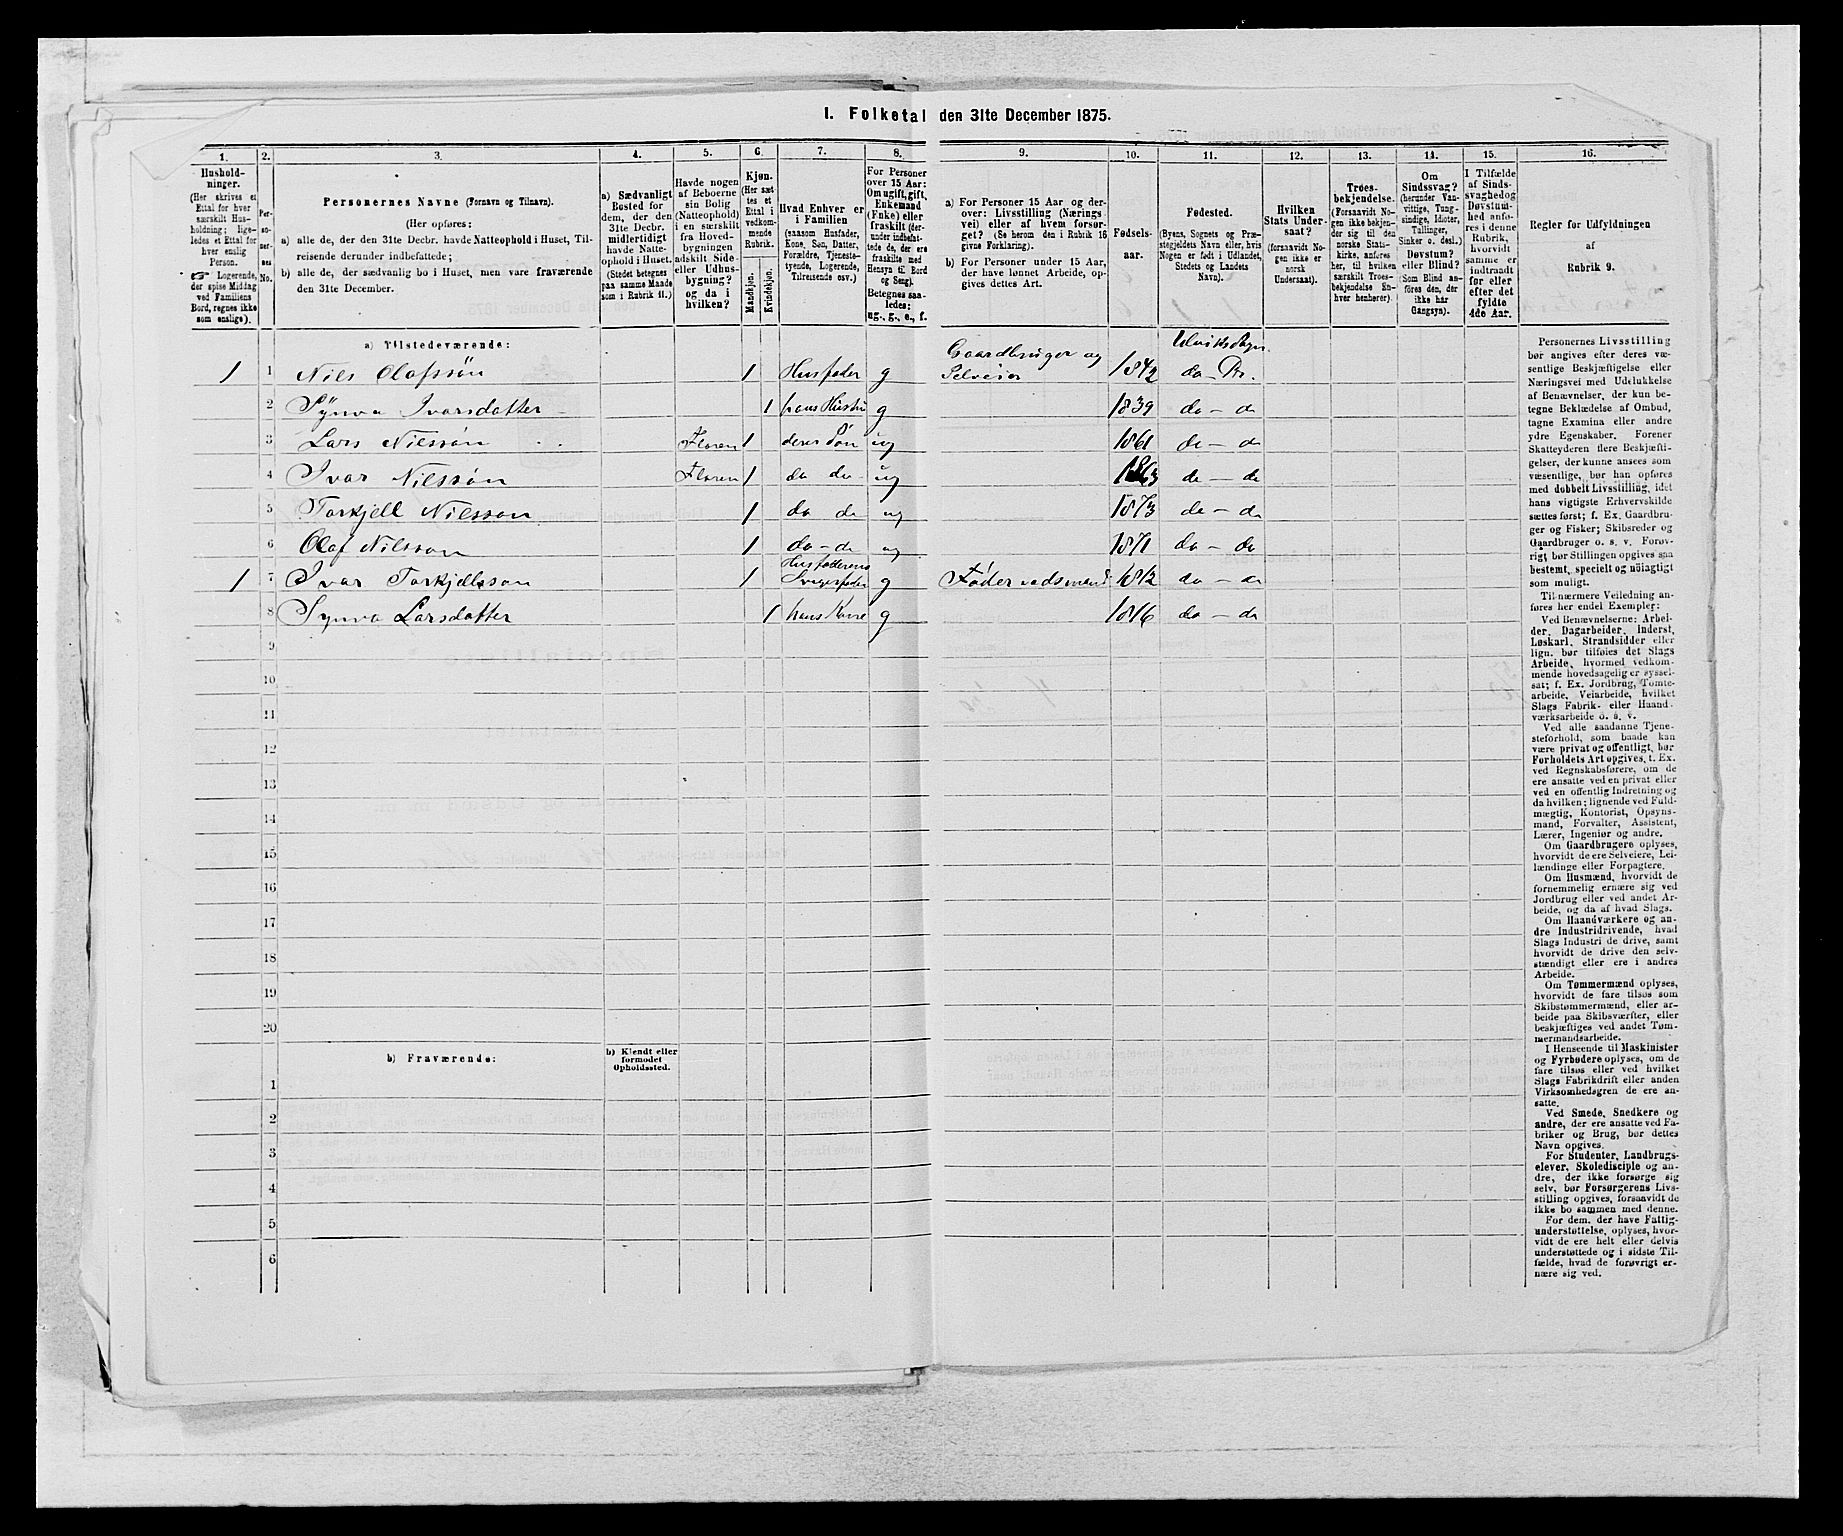 1. Folketal den 31te December 1875.
1. 2. 3. 4. 5. 6. 7. 8. 9. 10. 11. 12. 13. 14. 15. 16.
Hushold-
ninger.
(Her skrives et
Ettal for hver
særskilt Hus-
holdning; lige-
ledes et Ettal for
hver enslig
Person.
☞ Logerende,
der spise Middag
ved Familiens
Bord, regnes ikke
som enslige).
Per-
so-
ner-
nes
No.
Personernes Navne (Fornavn og Tilnavn).
(Her opføres:
a) alle de, der den 31te Decbr. havde Natteophold i Huset, Til-
reisende derunder indbefattede;
b) alle de, der sædvanlig bo i Huset, men vare fraværende
den 31te December.
a) Sædvanligt
Bosted for
dem, der den
31te Decbr.
midlertidigt
havde Natte-
ophold i Huset.
(Stedet betegnes
paa samme Maade
som i Rubrik 11.)
Havde nogen
af Beboerne
sin Bolig
(Natteophold)
i en særskilt
fra Hoved-
bygningen
adskilt Side-
eller Udhus-
bygning?
og da i
hvilken?
Kjøn.
(Her sæt-
tes et
Ettal i
vedkom-
mende
Rubrik.
Mandkjøn.
Kvindekjøn.
Hvad Enhver er
i Familien
(saasom Husfader,
Kone, Søn, Datter,
Forældre, Tjeneste-
tyende, Logerende,
Tilreisende osv.)
For Personer
over 15 Aar:
Om ugift, gift,
Enkemand
(Enke) eller
fraskilt (der-
under indbefat-
tede de, der ere
fraskilte med
Hensyn til Bord
og Seng).
Betegnes saa-
ledes:
ug., g., e., f.
a) For Personer 15 Aar og der-
over: Livsstilling (Nærings-
vei) eller af hvem forsør-
get? (Se herom den i Rubrik 16
givne Forklaring).
b) For Personer under 15 Aar,
der have lønnet Arbeide, op-
gives dettes Art.
Fødsels-
aar.
Fødested.
(Byens, Sognets og Præ-
stegjeldets Navn eller, hvis
Nogen er født i Udlandet,
Stedets og Landets
Navn).
Hvilken
Stats Under-
saat?
(forsaavidt No-
gen ikke er
norsk
Undersaat).
Troes-
bekjendelse.
(Forsaavidt No-
gen ikke bekjen-
der sig til den
norske Stats-
kirke, anføres
her, til hvilken
særskilt Troes-
bekjendelse En-
hver henhører).
Om
Sindssvag?
(herunder Van-
vittige, Tung-
sindige, Idioter,
Tullinger,
Sinker o. desl.)
Døvstum?
eller Blind?
(Som Blind an-
føres den, der
ikke har
Gangsyn).
I Tilfælde
af Sinds-
svaghed og
Døvstum-
hed anfø-
res i denne
Rubrik,
hvorvidt
samme er
indtraadt
før eller
efter det
fyldte
4de Aar.
Regler for Udfyldningen
af
Rubrik 9.
a) Tilstedeværende:
1 1 Nils Olafssön 1 Husfader g Gaardbruger og Selveier 1842 do - Pr.
2 Synva Ivarsdatter 1 hans Hustru g 1839 do - do
3 Lars Nilssön Floren 1 deres Søn ug 1861 do - do
4 Ivar Nilssön Floren 1 do do ug 1863 do - do
5 Torkjell Nilsson 1 do do ug 1873 do - do
6 Olaf Nilsson 1 do - do ug 1871 do - do
1 7 Ivar Torkjelsson 1 Husfaderens Svigerfader g Föderaadsmand 1812 do - do
8 Synva Larsdatter 1 hans Kone g 1816 do - do
9
10
11
12
13
14
15
16
17
18
19
20
b) Fraværende:
b) Kjendt eller
formodet
Opholdssted.
1
2
3
4
5
6
Personernes Livsstilling
bør angives efter deres væ-
sentlige Beskjæftigelse eller
Næringsvei med Udelukkelse
af Benævnelser, der kun be-
tegne Beklædelse af Ombud,
tagne Examina eller andre
ydre Egenskaber. Forener
Skatteyderen flere Beskjæfti-
gelser, der kunne ansees som
væsentlige, bør han opføres
med dobbelt Livsstilling, idet
hans vigtigste Erhvervskilde
sættes først; f. Ex. Gaardbru-
ger og Fisker; Skibsreder og
Gaardbruger o. s. v. Forøv-
rigt bør Stillingen opgives saa
bestemt, specielt og nøiagtigt
som muligt.
Til nærmere Veiledning an-
føres her endel Exempler:
Ved Benævnelserne: Arbei-
der, Dagarbeider, Inderst,
Løskarl, Strandsidder eller
lign. bør tilføies det Slags
Arbeide, hvormed vedkom-
mende hovedsagelig er syssel-
sat; f. Ex. Jordbrug, Tomte-
arbeide, Veiarbeide, hvilket
Slags Fabrik- eller Haand-
værksarbeide o. s. v.
Ved alle saadanne Tjene-
steforhold, som baade kan
være privat og offentligt, bør
Forholdets Art opgives, t. Ex.
ved Regnskabsførere, om de
ere ansatte ved en privat eller
ved en offentlig Indretning og
da hvilken; lignende ved Fuld-
mægtig, Kontorist, Opsyns-
mand, Forvalter, Assistent,
Lærer, Ingeniør og andre.
Om Gaardbrugere oplyses,
hvorvidt de ere Selveiere, Lei-
lændinge eller Forpagtere.
Om Husmænd, hvorvidt de
fornemmelig ernære sig ved
Jordbrug eller ved andet Ar-
beide, og da af hvad Slags.
Om Haandværkere og an-
dre Industridrivende, hvad
Slags Industri de drive, samt
hvorvidt de drive den selv-
stændigt eller ere i andres
Arbeide.
Om Tømmermænd oplyses,
hvorvidt de fare tilsøs som
Skibstømmermænd, eller ar-
beide paa Skibsværfter, eller
beskjæftiges ved andet Tøm-
mermandsarbeide.
I Henseende til Maskinister
og Fyrbødere oplyses, om de
fare tilsøs eller ved hvilket
Slags Fabrikdrift eller anden
Virksomhedsgren de ere an-
satte.
Ved Smede, Snedkere og
andre, der ere ansatte ved Fa-
briker og Brug, bør dettes
Navn opgives.
For Studenter, Landbrugs-
elever, Skoledisciple og an-
dre, der ikke forsørge sig
selv, bør Forsørgerens Livs-
stilling opgives, forsaavidt de
ikke bo sammen med denne.
For dem, der have Fattig-
understøttelse, oplyses, hvor-
vidt de ere helt eller delvis
understøttede og i sidste Til-
fælde, hvad de forøvrigt er-
nære sig ved.